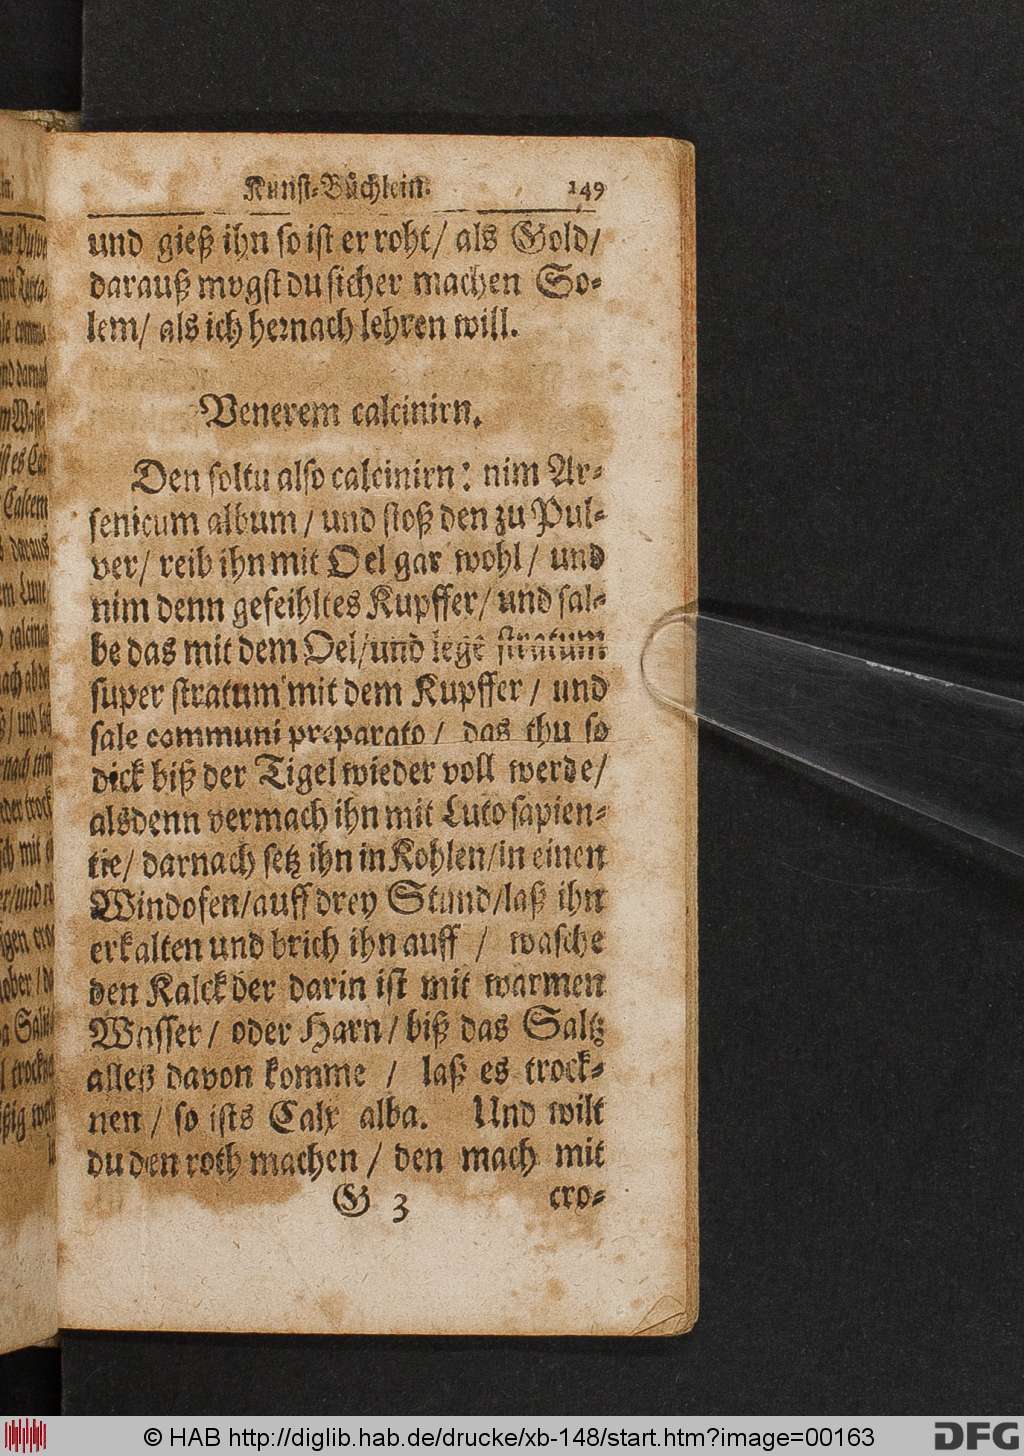 Kunst-Büchlein. 149
und gieß ihn so ist er roht/ als Gold/
darauß mogst du sicher machen So-
lem/ als ich hernach lehren will.
Venerem calcinirn.
Den soltu also calcinirn: nim Ar-
senicum album/ und stoß den zu Pul-
ver/ reib ihn mit Oel gar wohl/ und
nim denn gefeihltes Kupffer/ und sal-
be das mit dem Oel/ und lege stratum
super stratum mit dem Kupffer/ und
sale communi præparato/ das thu so
dick biß der Tigel wieder voll werde/
alsdenn vermach ihn mit Luto sapien-
tie/ darnach setz ihn in Kohlen/ in einen
Windofen/ auff drey Stund/ laß ihn
erkalten und brich ihn auff/ wasche
den Kalck der darin ist mit warmen
Wasser/ oder Harn/ biß das Saltz
alleß davon komme/ laß es trock-
nen/ so ists Calx alba. Und wilt
du den roth machen/ den mach mit
G 3 cro-
© HAB http://diglib.hab.de/drucke/xb-148/start.htm?image=00163
DFG